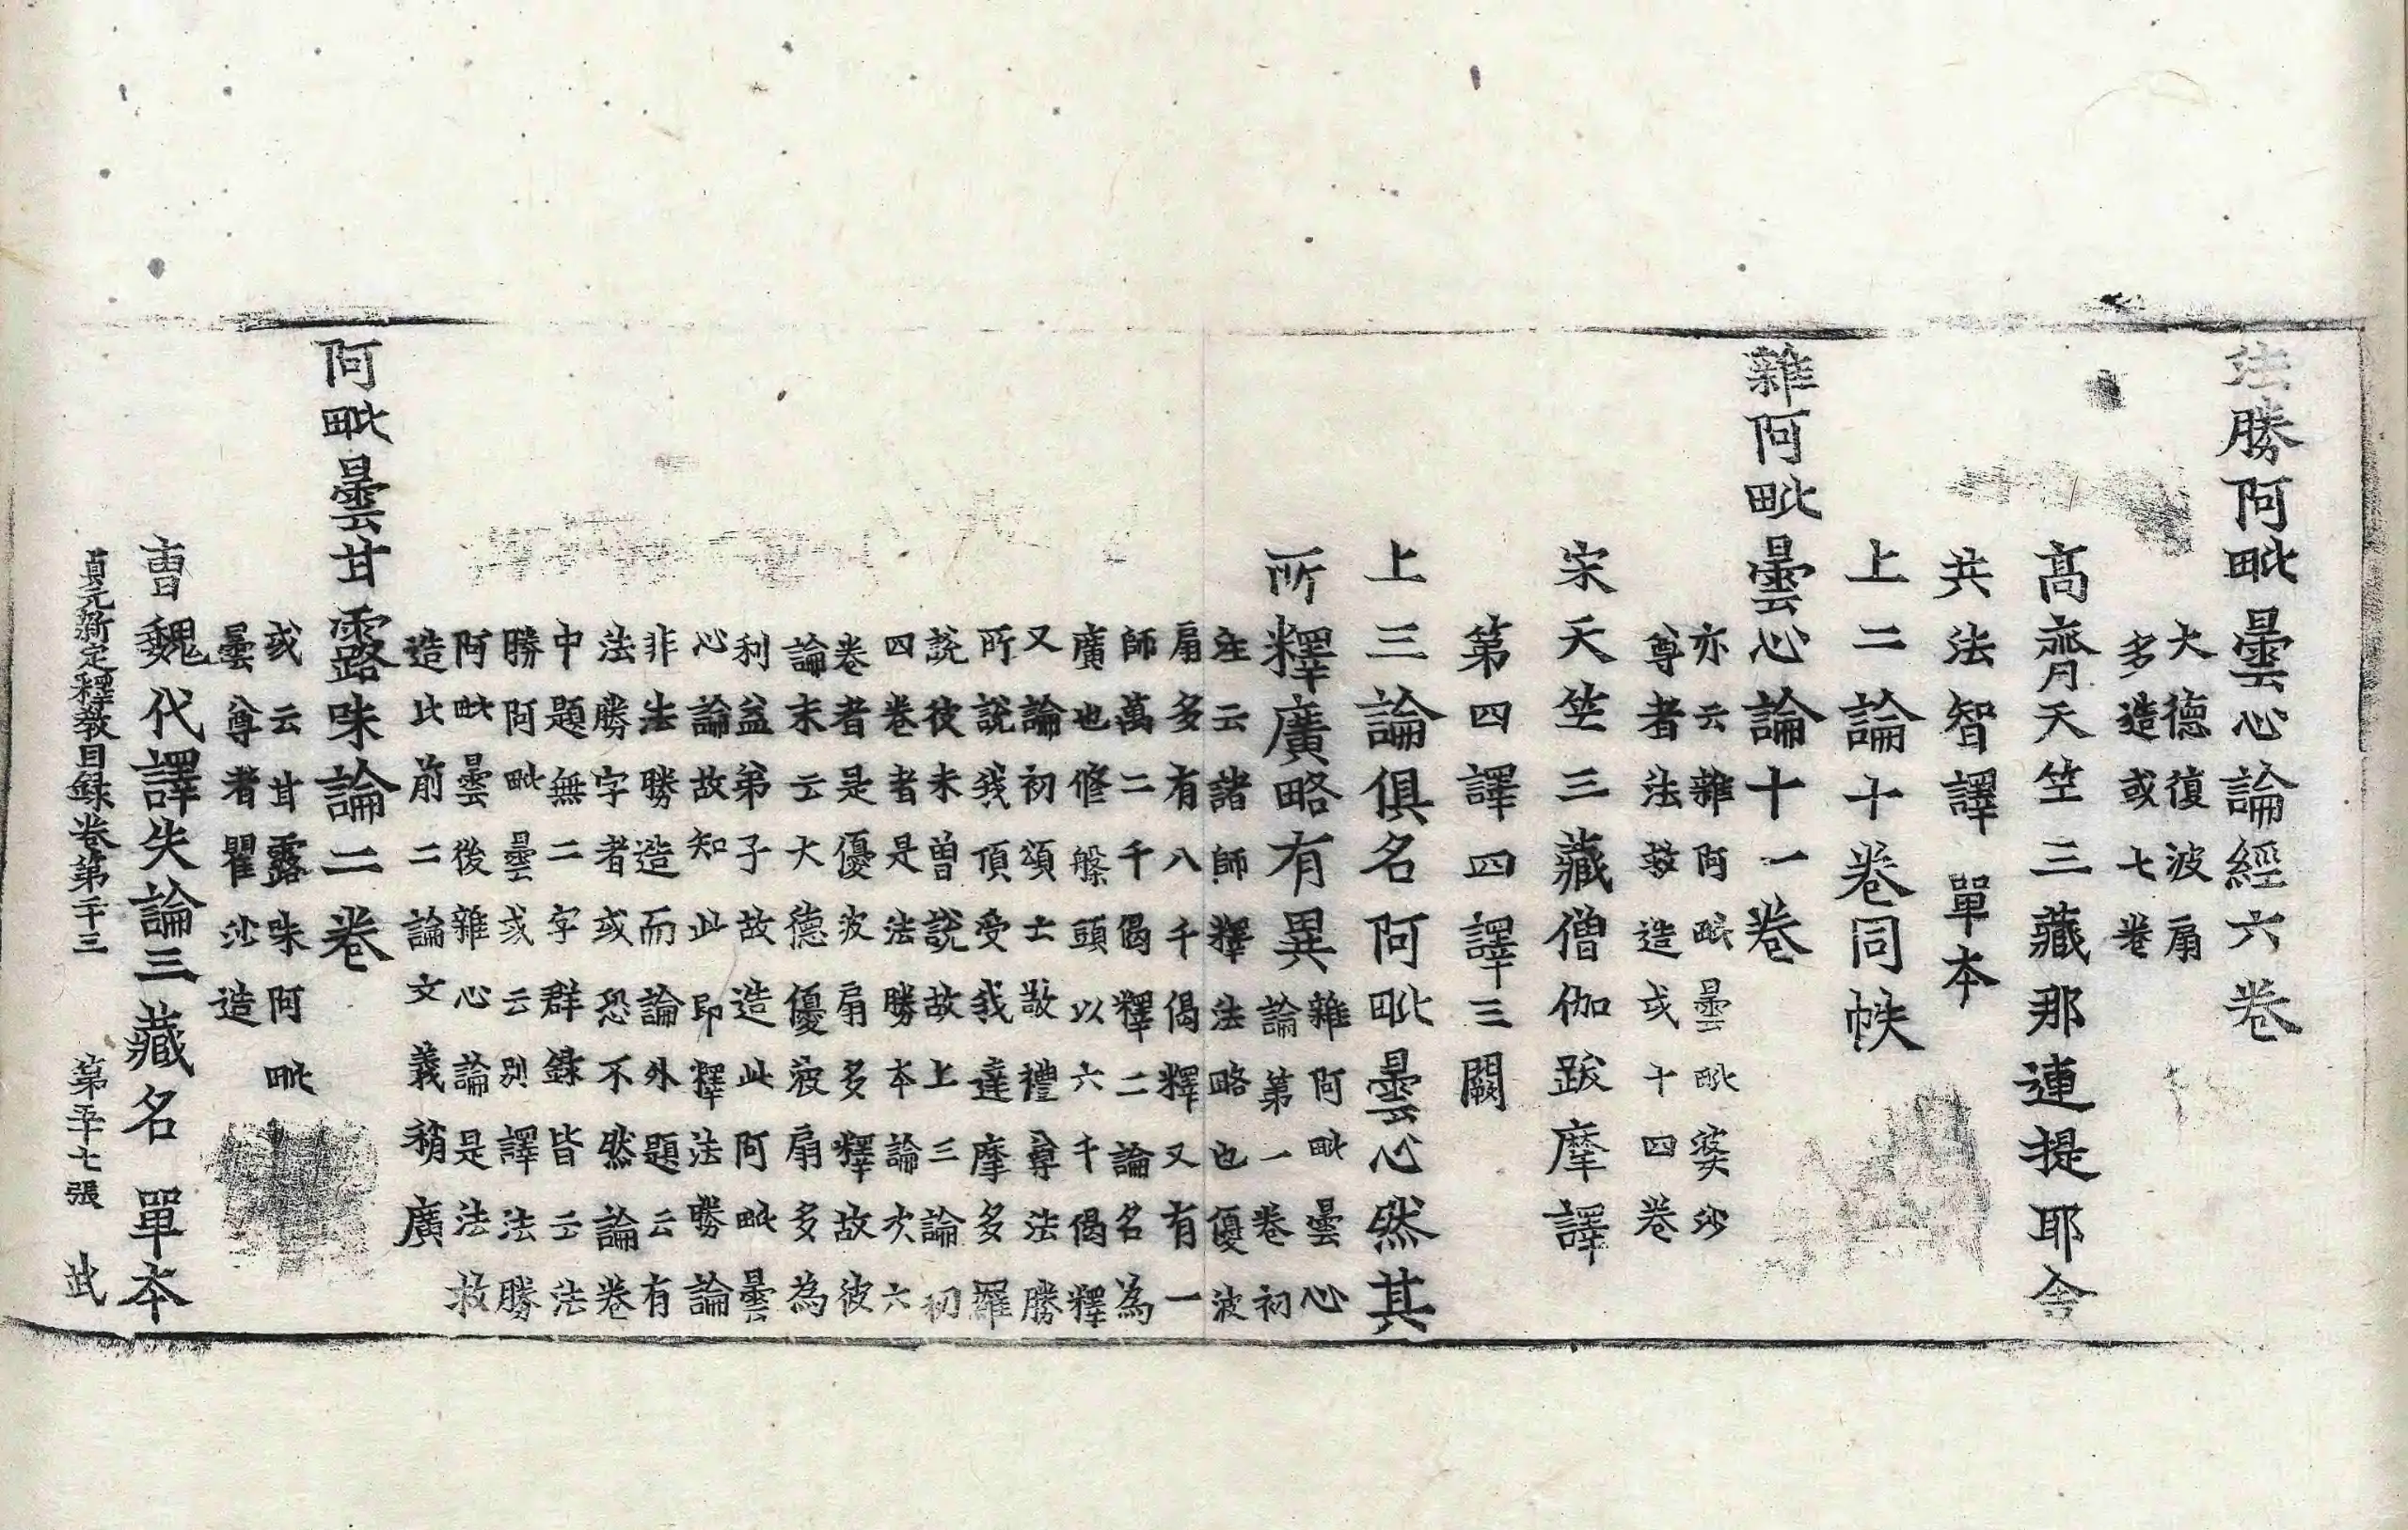 法勝阿毗曇心論經六卷
大德復波扇
多造或七卷
高齊天竺三藏那連提耶舍
共法智譯 單本
上二論十卷同帙
雜阿毗曇心論十一卷
亦云雜阿毗曇毗婆沙
尊者法救造或十四卷
宋天竺三藏僧伽跋摩譯
第四譯四譯三闕
上三論俱名阿毗曇心然其
所釋廣略有異
雜阿毗曇心
論第一卷初
注云諸師釋法略也優波
扇多有八千偈釋又有一
師萬二千偈釋二論名為
廣也修槃頭以六千偈釋
又論初頌士敬禮尊法勝
所說我頂受我達摩多羅
說彼未曾說故上三論初
四卷者是法勝本論次六
卷者是優波扇多釋故彼
論末云大德優波扇多為
利益弟子故造此阿毗曇
心論故知此即釋法勝論
非法勝造而論外題云有
法勝字者或恐不然論卷
中題無二字群錄皆云法
勝阿毗曇或云別譯法勝
阿毗曇後雜心論是法救
造比前二論文義稍廣
阿毗曇甘露味論二卷
或云甘露味阿毗
曇尊者瞿沙造
曹魏代譯失論三藏名 單本
貞元新定釋教目錄卷第三十 第五十七張 武